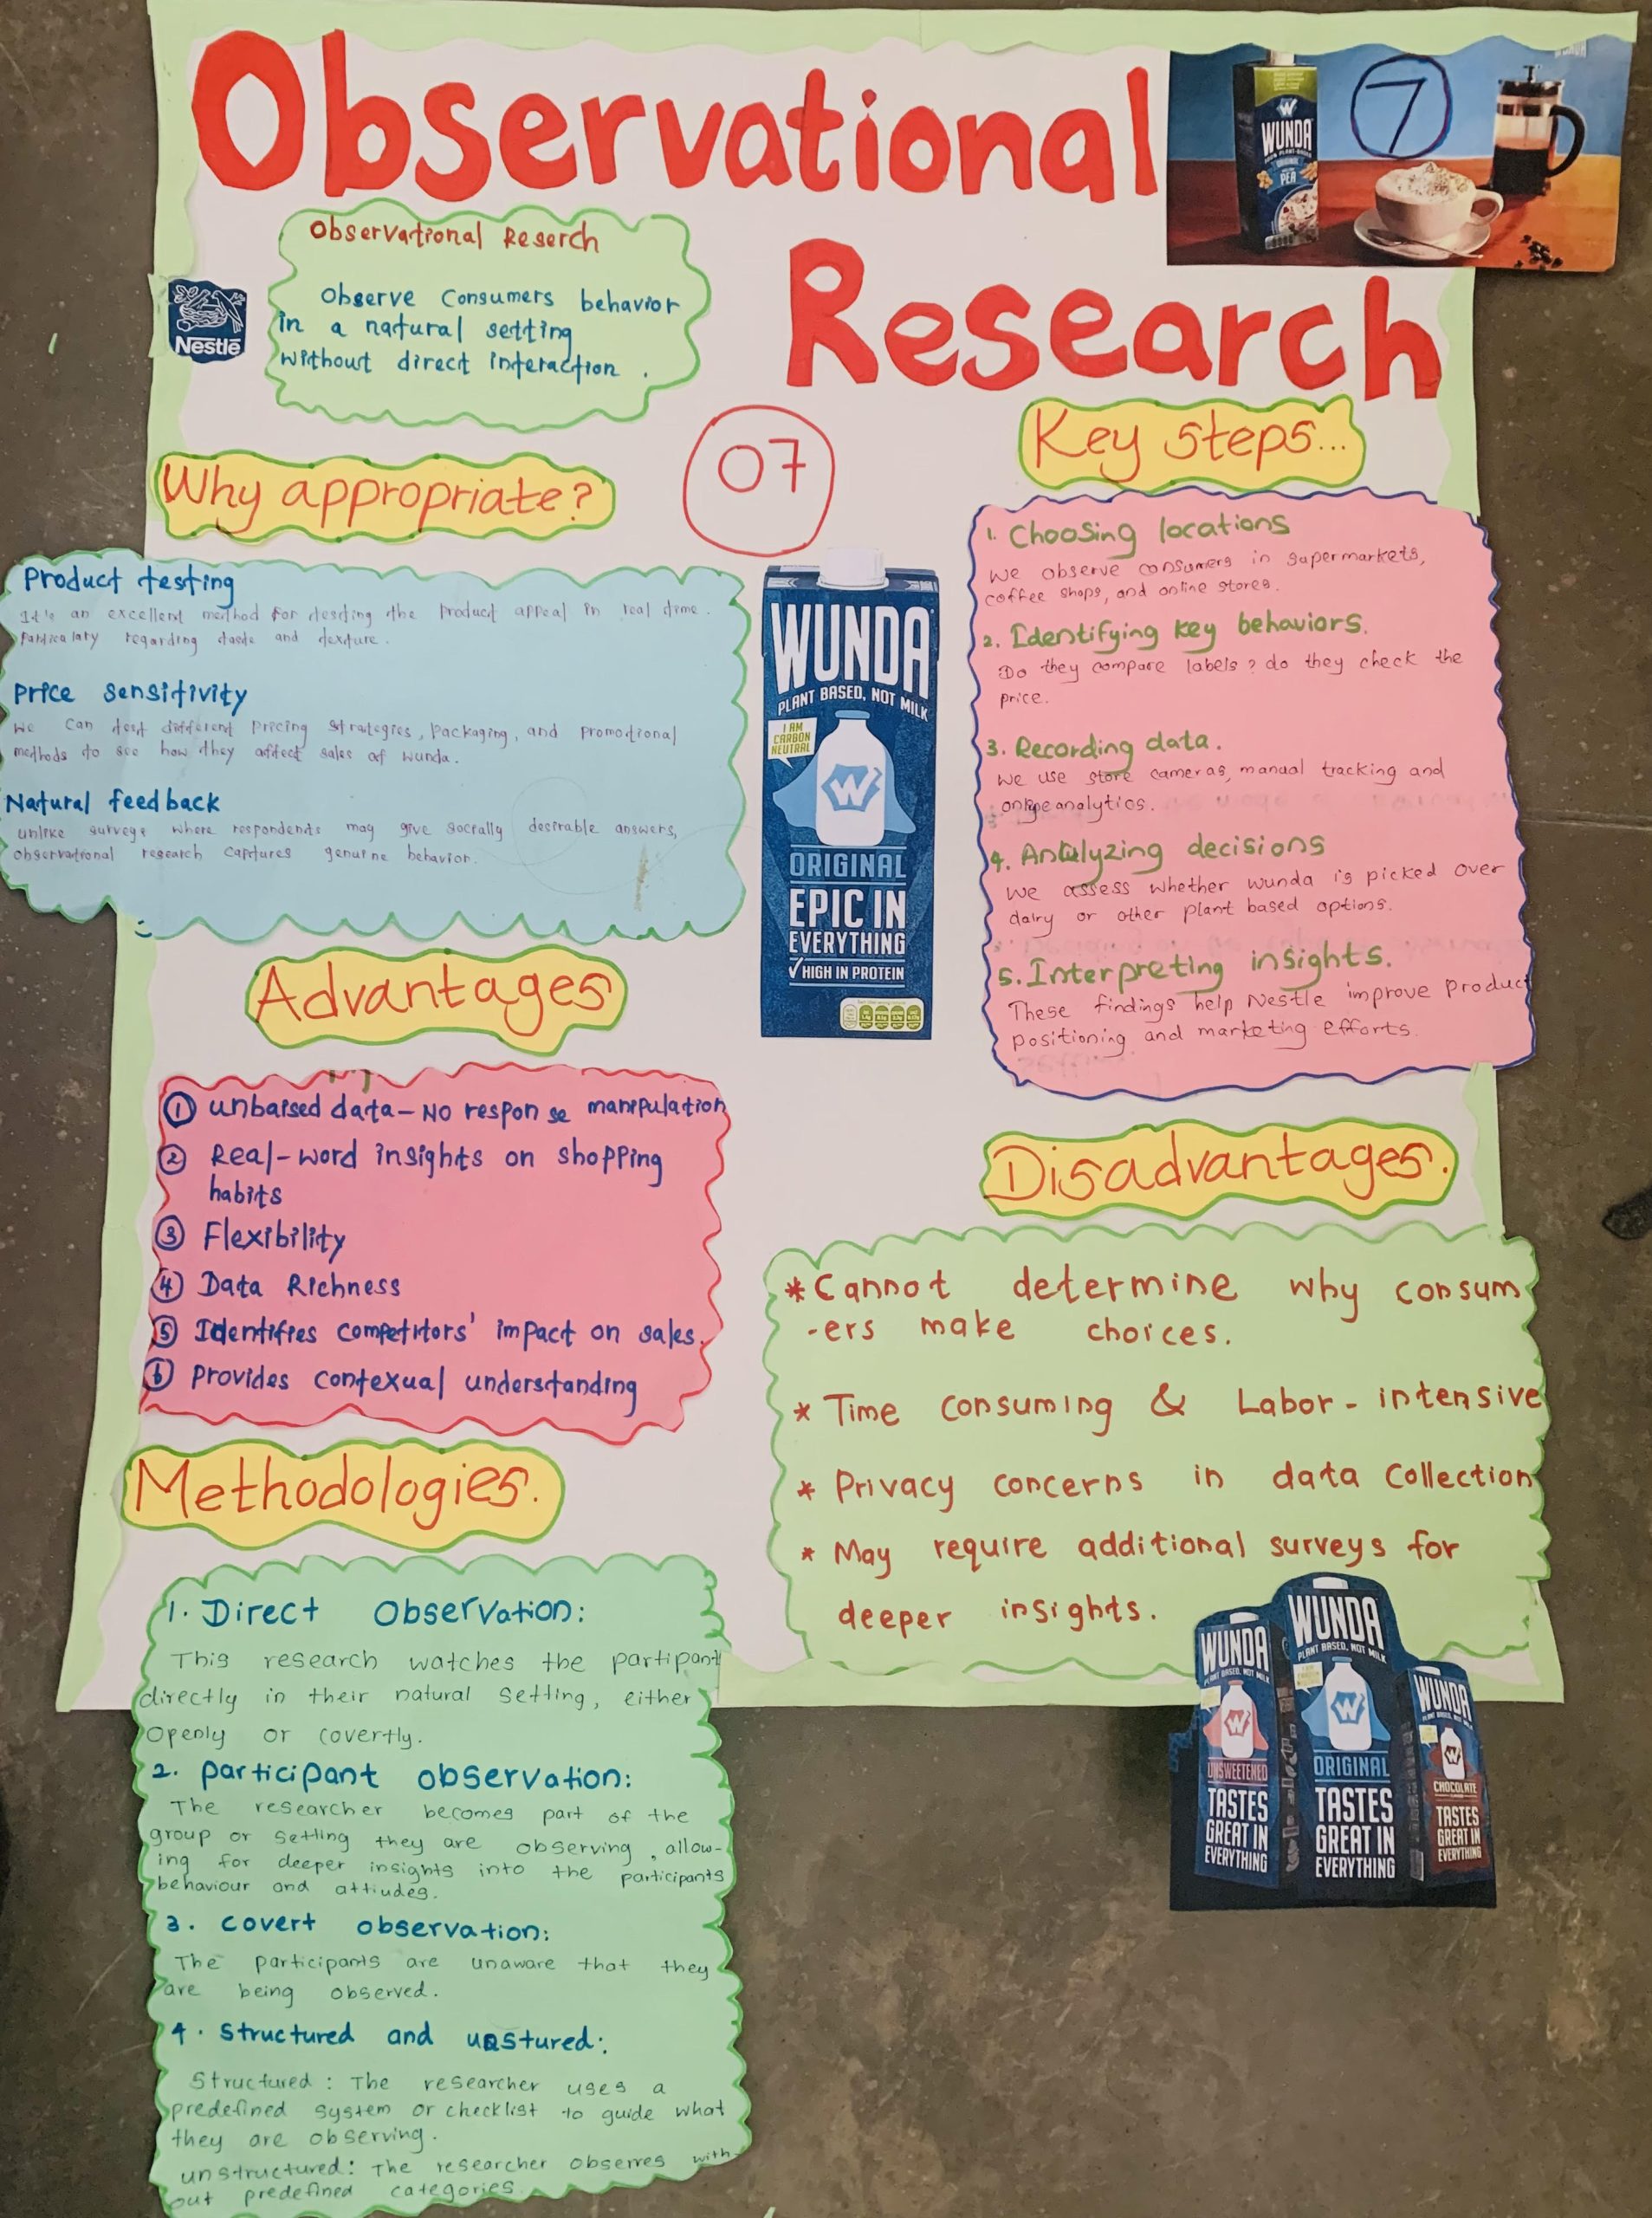 Observational
Research
WUNDA
ORIGINAL
PEA
7
Observational Reserch
Observe Consumers behavior
in a natural setting
without direct interaction .
Nestlé
07
Why appropriate?
Product testing
It's an excellent method for testing the product appeal in real time.
regarding taste and texture.
Price sensitivity
We can test different pricing strategies, packaging, and promotional
methods to see how they affect sales of wunda.
Natural feedback
unlike surveys where respondents may give socially desirable answers,
observational research captures genuine behavior.
Key steps...
1. Choosing locations
We observe consumers in supermarkets,
coffee shops, and online stores.
2. Identifying key behaviors.
Do they compare labels? do they check the
price.
3. Recording data.
We use store cameras, manual tracking and
analytics.
4. Analyzing decisions
We assess whether wunda is picked over
dairy or other plant based options.
5. Interpreting insights.
These findings help Nestle improve product
positioning and marketing efforts.
WUNDA
PLANT BASED, NOT MILK
I AM
CARBON
NEUTRAL
W
ORIGINAL
EPIC IN
EVERYTHING
HIGH IN PROTEIN
Advantages
① unbaised data - No response manipulation
② Real-word insights on shopping
habits
③ Flexibility
④ Data Richness
⑤ Identifies competitors' impact on sales.
⑥ Provides contexual understanding
Disadvantages.
* Cannot determine why consum
-ers make choices.
* Time consuming & Labor - intensive
* Privacy concerns in data collection
* May require additional surveys for
deeper insights.
Methodologies.
1. Direct Observation:
This research watches the partipant
directly in their natural setting, either
Openly or covertly.
2. participant observation:
The researcher becomes part of the
group or setting they are observing, allow-
ing for deeper insights into the participants
behaviour and attiudes.
3. covert observation:
The participants are unaware that they
are being observed.
4. structured and unstured:
Structured : The researcher uses a
predefined system or checklist to guide what
they are observing.
unstructured: The researcher observes with-
out predefined categories.
WUNDA
PLANT BASED, NOT MILK
W
UNSWEETENED
TASTES
GREAT IN
EVERYTHING
WUNDA
PLANT BASED, NOT MILK
W
ORIGINAL
TASTES
GREAT IN
EVERYTHING
WUNDA
PLANT BASED, NOT MILK
W
CHOCOLATE
TASTES
GREAT IN
EVERYTHING